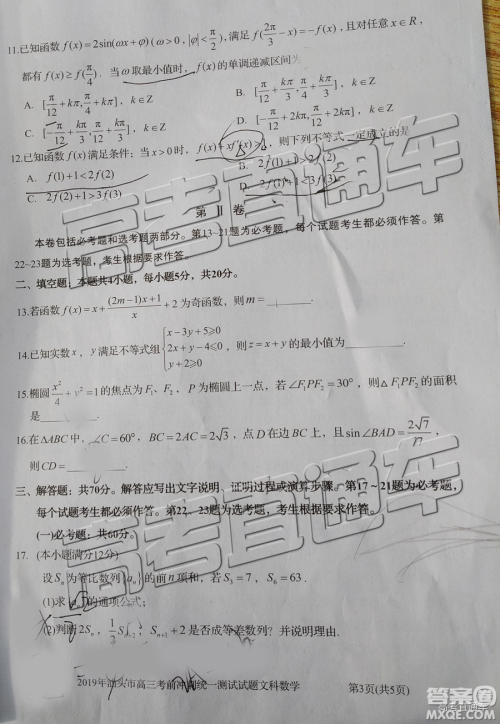 11.已知函数 f(x)=2sin(ωx+φ)(ω>0, |φ|<π/2), 满足 f(2π/3 -x)=-f(x), 且对任意 x∈R,
都有 f(x)≥f(π/4). 当 ω 取最小值时, f(x) 的单调递减区间为
A. [π/12+kπ, π/4+kπ], k∈Z
B. [-π/12+kπ, π/4+kπ], k∈Z
C. [-π/12+kπ/3, π/4+kπ/3], k∈Z
12.已知函数 f(x) 满足条件:当 x>0 时, 则下列不等式一定成立的是
A. f(1)<2f(2)
B. 2f(1)>f(2)
C. 2f(2)+1>3f(3)
D. 2f(1)+1<3f(3)
第 Ⅱ 卷
本卷包括必考题和选考题两部分。第13~21题为必考题,每个试题考生都必须作答。第
22~23题为选考题,考生根据要求作答。
二、填空题:本题共4小题,每小题5分,共20分。
13.若函数 f(x)=x+((2m-1)x+1)/x+2 为奇函数,则 m=
14.已知实数 x, y 满足不等式组 {x-3y+5≥0 2x+y-4≤0 y+2≥0, 则 z=x+y 的最小值为
15.椭圆 x²/4+y²=1 的焦点为 F₁、F₂, P 为椭圆上一点,若 ∠F₁PF₂=30°,则△F₁PF₂ 的面积
是
16.在△ABC 中,∠C=60°, BC=2AC=2√3, 点 D 在边 BC 上,且 sin∠BAD=2√7/7,
则 CD=
三、解答题:共70分。解答应写出文字说明、证明过程或演算步骤。第17~21题为必考题,
每个试题考生都必须作答。第22、23题为选考题,考生根据要求作答。
(一)必考题:共60分。
17. (本小题满分12分)
设 Sₙ 为等比数列{aₙ}的前 n 项和,若 S₃=7, S₆=63.
(1)求{aₙ}的通项公式;
(2)判断 2Sₙ, Sₙ₊₁+2 是否成等差数列?并说明理由.
2019年汕头市高三考前冲刺统一测试试题文科数学
第3页(共5页)
高考直通车
答案圈